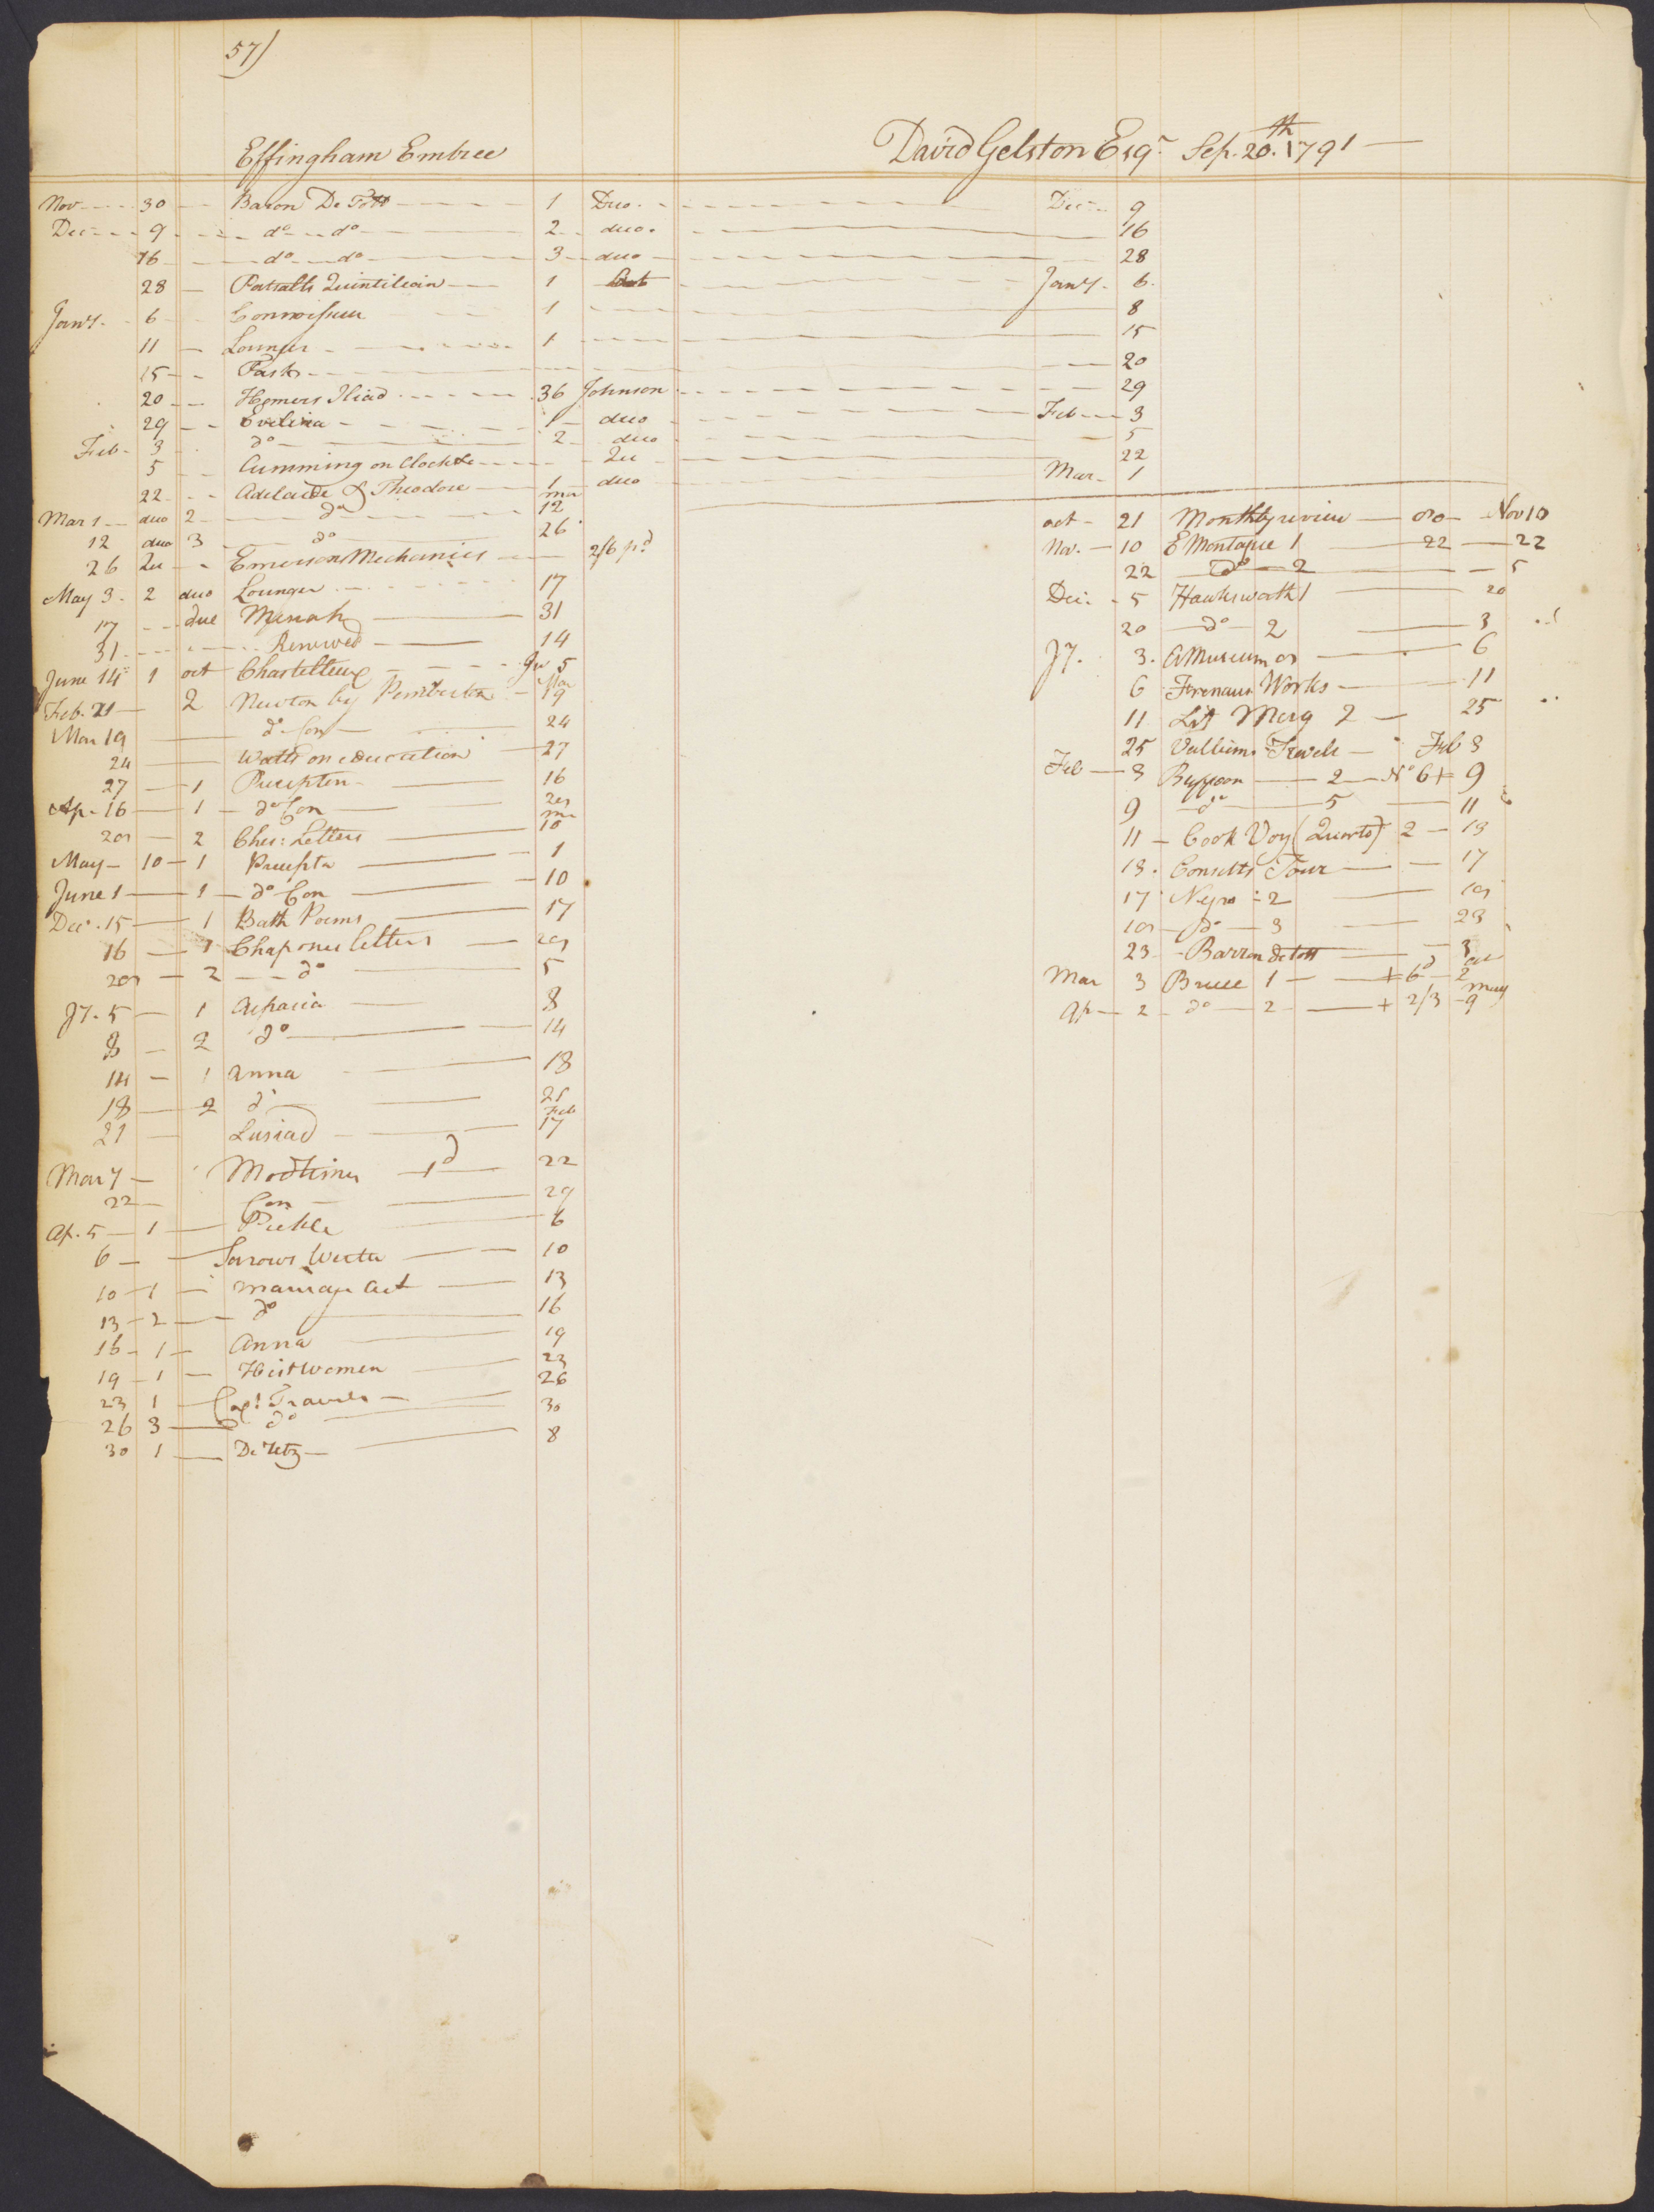 57)
Effingham Embree
David Gelston Esqr Sep. 20th. 1791
Nov 30 Baron De Tott 1 Duo. Dec 9
Dec 9 do do 2 duo. 16
16 do do 3 duo 28
28 Quintilian 1 Oct Jany. 6.
Jany. 6 Connoisseur 1 8
11 Lounger 1 15
15 Task 20
20 Homers Iliad 36 Johnson 29
29 Evelina 1 duo Feb 3
Feb 3 do 2 duo 5
5 Cumming on Clock &c Qu 22
22 Adelaide & Theodore 1 duo Mar 1
Mar 1 duo 2 do mar 12
12 duo 3 do 26
26 Qu Emersons Mechanics 2/6 pd
May 3 2 duo Lounger 17
17 due 31
31 Renewed 14
June 14 1 oct Chastelleux Ju 5
Feb. 21 2 Newton by Pemberton Mar 19
Mar 19 do Con 24
24 Watts on education 27
27 1 Preceptor 16
Ap. 16 1 do Con 20
20 2 Ches: Letters ma 10
May 10 1 Precepta 1
June 1 1 do Con 10
Dec. 15 1 Bath Poems 17
16 1 Chapones letters 20
20 2 do 5
Jy. 5 1 Aspasia 8
8 2 do 14
14 1 Anna 18
18 2 do 21
21 Lusiad Feb 17
Mar 7 1d 22
22 Con 29
Ap. 5 1 Pickle 6
6 Sorrows Werter 10
10 1 marriage Act 13
13 2 do 16
16 1 Anna 19
19 1 Hist Women 23
23 1 Travels 26
26 3 do 30
30 1 De Retz 8
oct 21 Monthly review Nov 10
Nov. 10 E Montague 1 22 22
22 do 2 5
Dec. 5 Hawksworth 1 20
20 do 2 3
Jy. 3. A Museum 6
6 Works 11
11 Lit Mag 2 25
25 Travels Feb 3
Feb 3 Buffoon 2 No 6 + 9
9 do 5 11
11 Cook Voy (Quarto) 2 13
13. Consetts Tour 17
17 Negro 2 19
19 do 3 23
23 Barron de tott 3
Mar 3 Bruce 1 + 6d ap 2
Ap 2 do 2 + 2/3 may 9